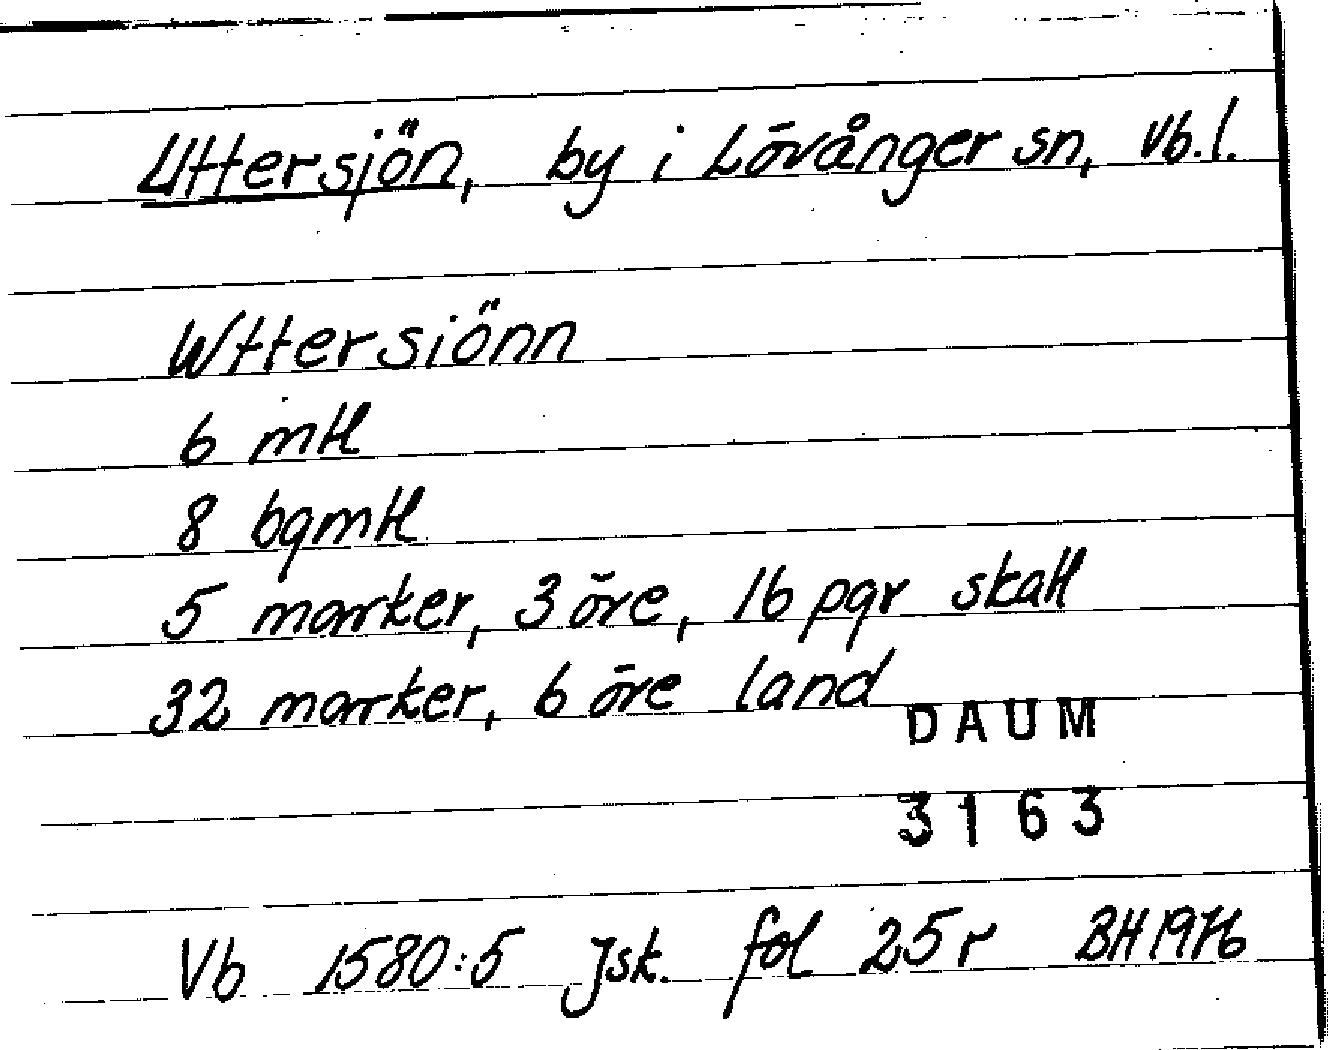 Uttersjön, by i Lövånger sn, Vb.l.
Wttersiönn
6 mtl
8 bgmtl
5 marker, 3 öre, 16 pgr skatt
32 marker, 6 öre land
DAUM
3163
Vb 1580:5 Jsk. fol 25r BH 1976